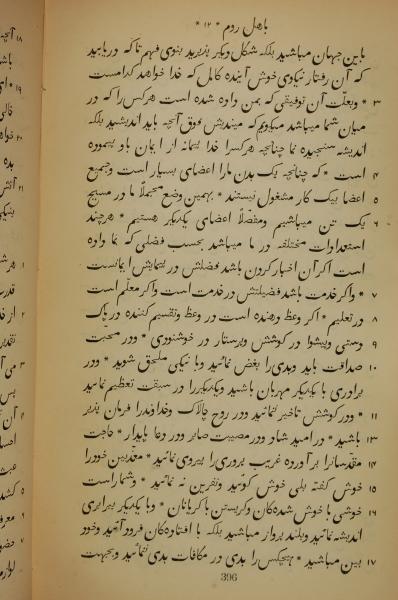 باهل روم * ۱۲ *
باین جهان مباشید بلکه شکل دیگر پذیرید بنوی فهم تا که دریابید
که آن رفتار نیکوی خوش آینده کامل که خدا خواهد کدامست
۳ * وبعلت آن توفیقی که بمن داده شده است هرکس را که در
میان شما میباشد میگویم که میندیش فوق آنچه باید اندیشید بلکه
اندیشه سنجیده نما چنانچه هرکسرا خدا پیمانه از ایمان باو پیموده
۴ است * که چنانچه یک بدن مارا اعضای بسیار است وجمیع
۵ اعضا بیک کار مشغول نیستند * بهمین وضع مجملاً ما در مسیح
۶ یک تن میباشیم ومفصلاً اعضای یکدیگر هستیم * هرچند
استعدادات مختلفه در ما میباشد بحسب فضلی که بما داده
است اکر آن اخبار کردن باشد فضلش در پیمایش ایمانست
۷ * واکر خدمت باشد فضیلتش در خدمت است واکر معلّم است
۸ در تعلیم * اکر وعظ دهنده است در وعظ وتقسیم کننده در پاک
۹ وستی وپیشوا در کوشش وپرستار در خوشنودی * ودر محبّت
۱۰ صداقت باید وبدی را بغض نمائید وبا نیکی ملحق شوید * ودر
برادری با یکدیکر مهربان باشید ویکدیکررا در سبقت تعظیم نمائید
۱۱ * ودر کوشش تاخیر ننمائید ودر روح چالاک وخداوندرا فرمان پذیر
۱۲ باشید * در امید شاد ودر مصیبت صابر ودر دعا پایدار * حاجت
۱۴ مقدّسانرا بر آورده غریب پروری را پیروی نمائید * معذّبین خودرا
۱۵ خوش کفته بلی خوش کوئید ونفرین نه نمائید * وشماراست
۱۶ خوشی با خوش شده‌کان وکریستن با کریانان * وبا یکدیکر ببرابری
اندیشه نمائید وبلند پرواز مباشید بلکه با افتاده‌کان فرود آئید وخود
۱۷ بین مباشید * هیچکس را بدی در مکافات بدی ننمائید وبجهت
396